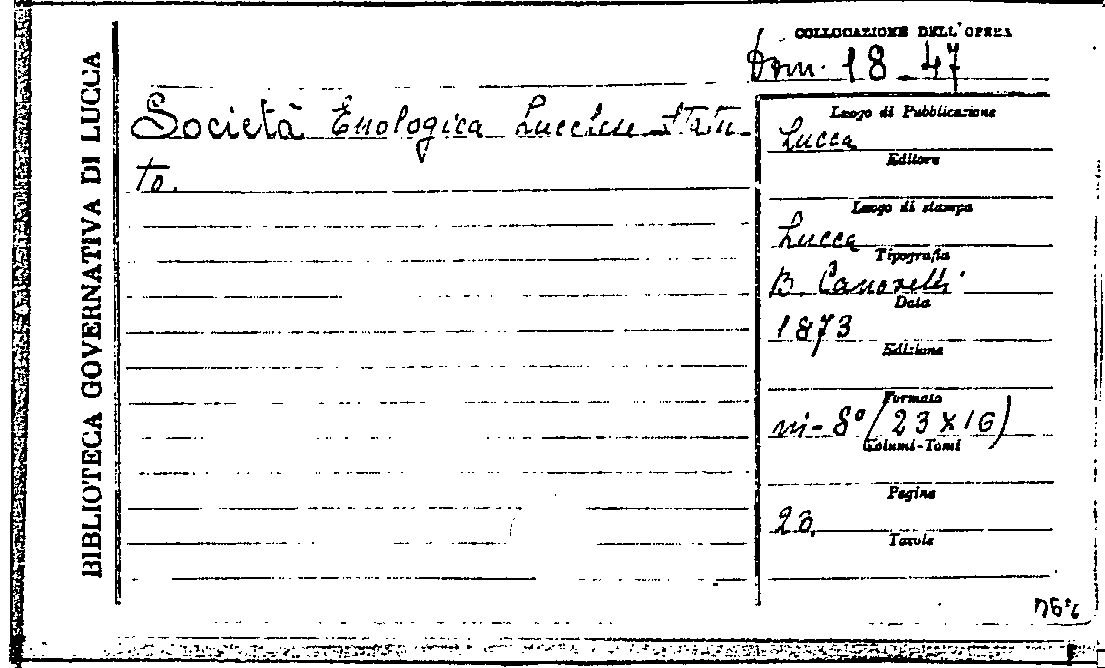 BIBLIOTECA GOVERNATIVA DI LUCCA
COLLOCAZIONE DELL'OPERA
Dom. 18-47
Società Enologica Lucchese Statu-
to.
Luogo di Pubblicazione
Lucca
Editore
Luogo di stampa
Lucca
Tipografia
B. Canovetti
Data
1873
Edizione
Formato
in-8° (23×16)
Volumi-Tomi
Pagine
20.
Tavole